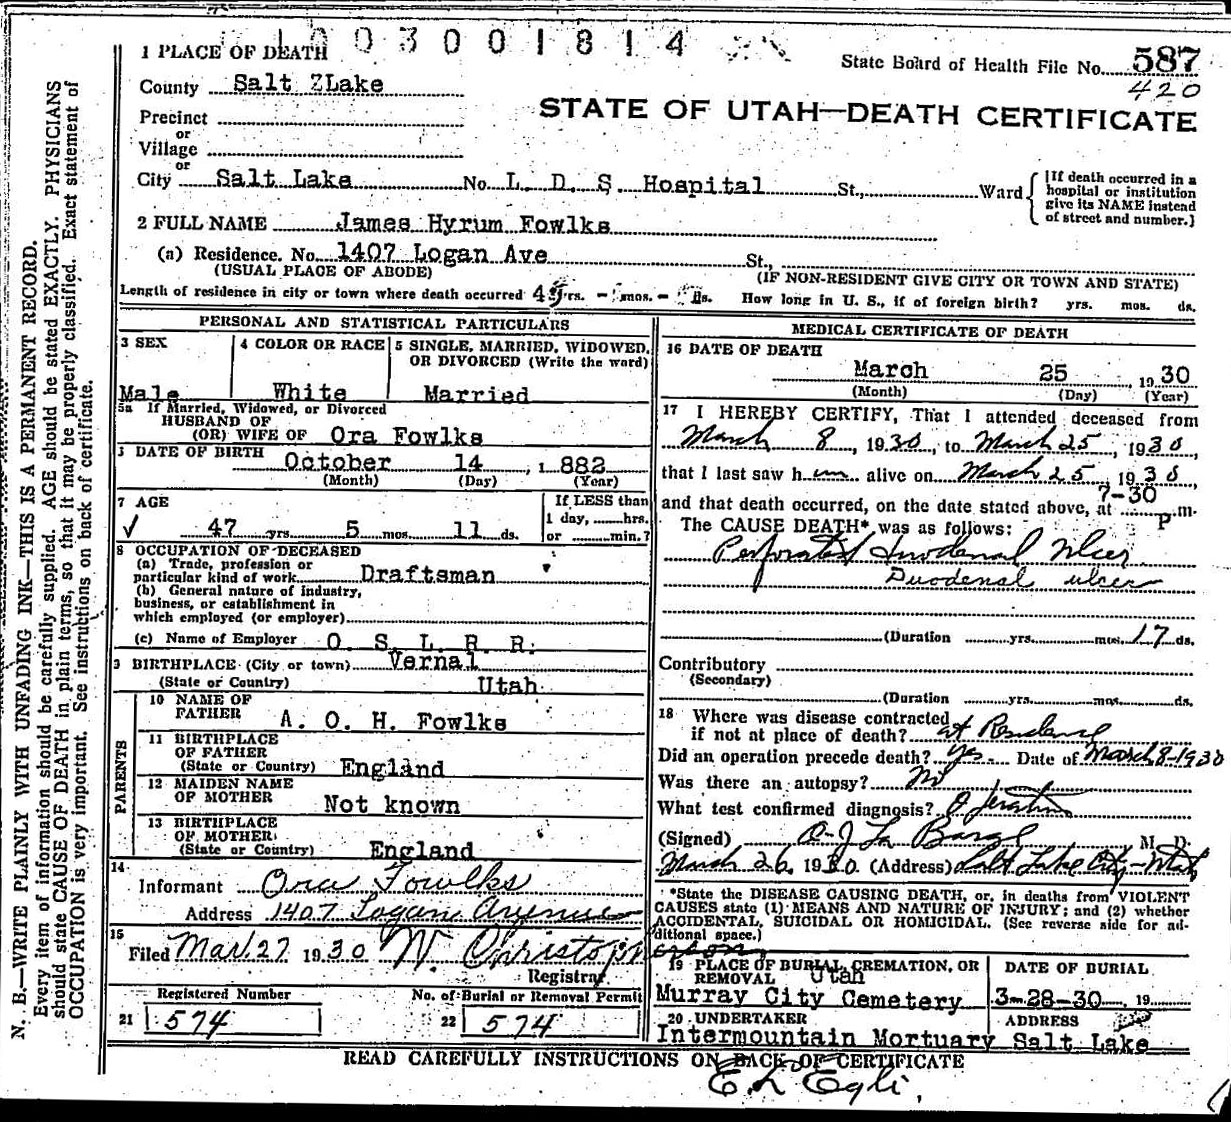 1003001814
1 PLACE OF DEATH
State Board of Health File No. 587
420
County Salt ZLake
STATE OF UTAH—DEATH CERTIFICATE
Precinct
or
Village
or
City Salt Lake No. L. D. S. Hospital St., Ward
[If death occurred in a
hospital or institution
give its NAME instead
of street and number.]
2 FULL NAME James Hyrum Fowlks
(a) Residence. No. 1407 Logan Ave St.,
(USUAL PLACE OF ABODE) (IF NON-RESIDENT GIVE CITY OR TOWN AND STATE)
Length of residence in city or town where death occurred yrs. - mos. - ds. How long in U. S., if of foreign birth? yrs. mos. ds.
PERSONAL AND STATISTICAL PARTICULARS
3 SEX
Male
4 COLOR OR RACE
White
5 SINGLE, MARRIED, WIDOWED,
OR DIVORCED (Write the word)
Married
5a If Married, Widowed, or Divorced
HUSBAND OF
(OR) WIFE OF Ora Fowlks
DATE OF BIRTH October 14, 1 882
(Month) (Day) (Year)
7 AGE
47 yrs. 5 mos. 11 ds.
If LESS than
1 day, hrs.
or min.?
8 OCCUPATION OF DECEASED
(a) Trade, profession or
particular kind of work Draftsman
(b) General nature of industry,
business, or establishment in
which employed (or employer)
(c) Name of Employer O. S. L. R. R.
9 BIRTHPLACE (City or town) Vernal
(State or Country) Utah
PARENTS
10 NAME OF
FATHER A. O. H. Fowlks
11 BIRTHPLACE
OF FATHER
(State or Country) England
12 MAIDEN NAME
OF MOTHER Not known
13 BIRTHPLACE
OF MOTHER
(State or Country) England
14
Informant Ora Fowlks
Address 1407 Logan Avenue
15
Filed Mar. 27 1930 W. Christopherson
Registrar
Registered Number
21 574
No. of Burial or Removal Permit
22 574
MEDICAL CERTIFICATE OF DEATH
16 DATE OF DEATH
March 25, 1930
(Month) (Day) (Year)
17 I HEREBY CERTIFY, That I attended deceased from
March 8, 1930, to March 25, 1930
that I last saw h im alive on March 25, 1930
and that death occurred, on the date stated above, at 7-30 P m.
The CAUSE DEATH* was as follows:
Perforated Duodenal Ulcer
Duodenal ulcer
(Duration yrs. mos. 17 ds.
Contributory
(Secondary)
(Duration yrs. mos. ds.
18 Where was disease contracted
if not at place of death? at Residence
Did an operation precede death? Yes Date of March 8-1930
Was there an autopsy? No
What test confirmed diagnosis? Operation
(Signed) M. D.
March 26, 1930. (Address) Salt Lake City - Utah
*State the DISEASE CAUSING DEATH, or, in deaths from VIOLENT
CAUSES state (1) MEANS AND NATURE OF INJURY; and (2) whether
ACCIDENTAL, SUICIDAL OR HOMICIDAL. (See reverse side for ad-
ditional space.)
19 PLACE OF BURIAL, CREMATION, OR
REMOVAL Utah
Murray City Cemetery
DATE OF BURIAL
3-28-30, 19
20 UNDERTAKER ADDRESS
Intermountain Mortuary Salt Lake
READ CAREFULLY INSTRUCTIONS ON BACK OF CERTIFICATE
E L Egli.
N. B.—WRITE PLAINLY WITH UNFADING INK—THIS IS A PERMANENT RECORD.
Every item of information should be carefully supplied. AGE should be stated EXACTLY. PHYSICIANS
should state CAUSE OF DEATH in plain terms, so that it may be properly classified. Exact statement of
OCCUPATION is very important. See instructions on back of certificate.